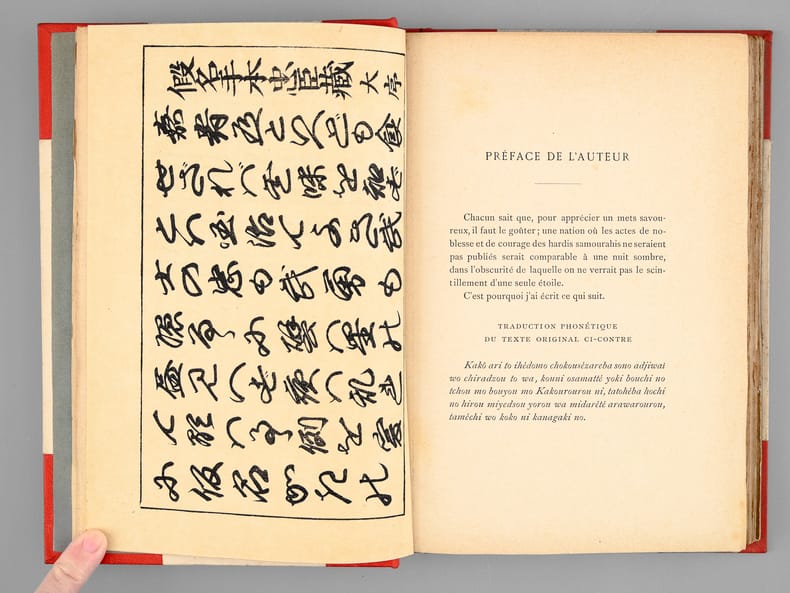 假名手本忠臣藏 大序
嘉肴有といへども食
せざれバ其味を
とハ国治てよき武
士の忠も武勇も
にバ星の
昼見へず夜ハ乱
て顕ハるゝ例を爰
に仮名の
PRÉFACE DE L'AUTEUR
Chacun sait que, pour apprécier un mets savou-
reux, il faut le goûter ; une nation où les actes de no-
blesse et de courage des hardis samouraïs ne seraient
pas publiés serait comparable à une nuit sombre,
dans l'obscurité de laquelle on ne verrait pas le scin-
tillement d'une seule étoile.
C'est pourquoi j'ai écrit ce qui suit.
TRADUCTION PHONÉTIQUE
DU TEXTE ORIGINAL CI-CONTRE
Kakô ari to ihédomo chokousézareba sono adjiwaï
wo chiradzou to wa, kouni osamatté yoki bouchi no
tchou mo bouyou mo Kakourourou ni, tatohéba hochi
no hirou miyedsou yorou wa midarétê arawarourou,
tamêchi wo koko ni kanagaki no.